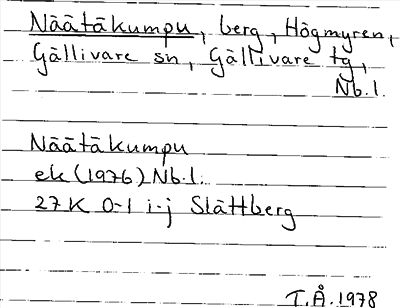 Näätäkumpu, berg, Högmyren,
Gällivare sn, Gällivare tg,
Nb.l.
Näätäkumpu
ek (1976) Nb.l.
27K 0-1 i-j Slättberg
T.Å.1978